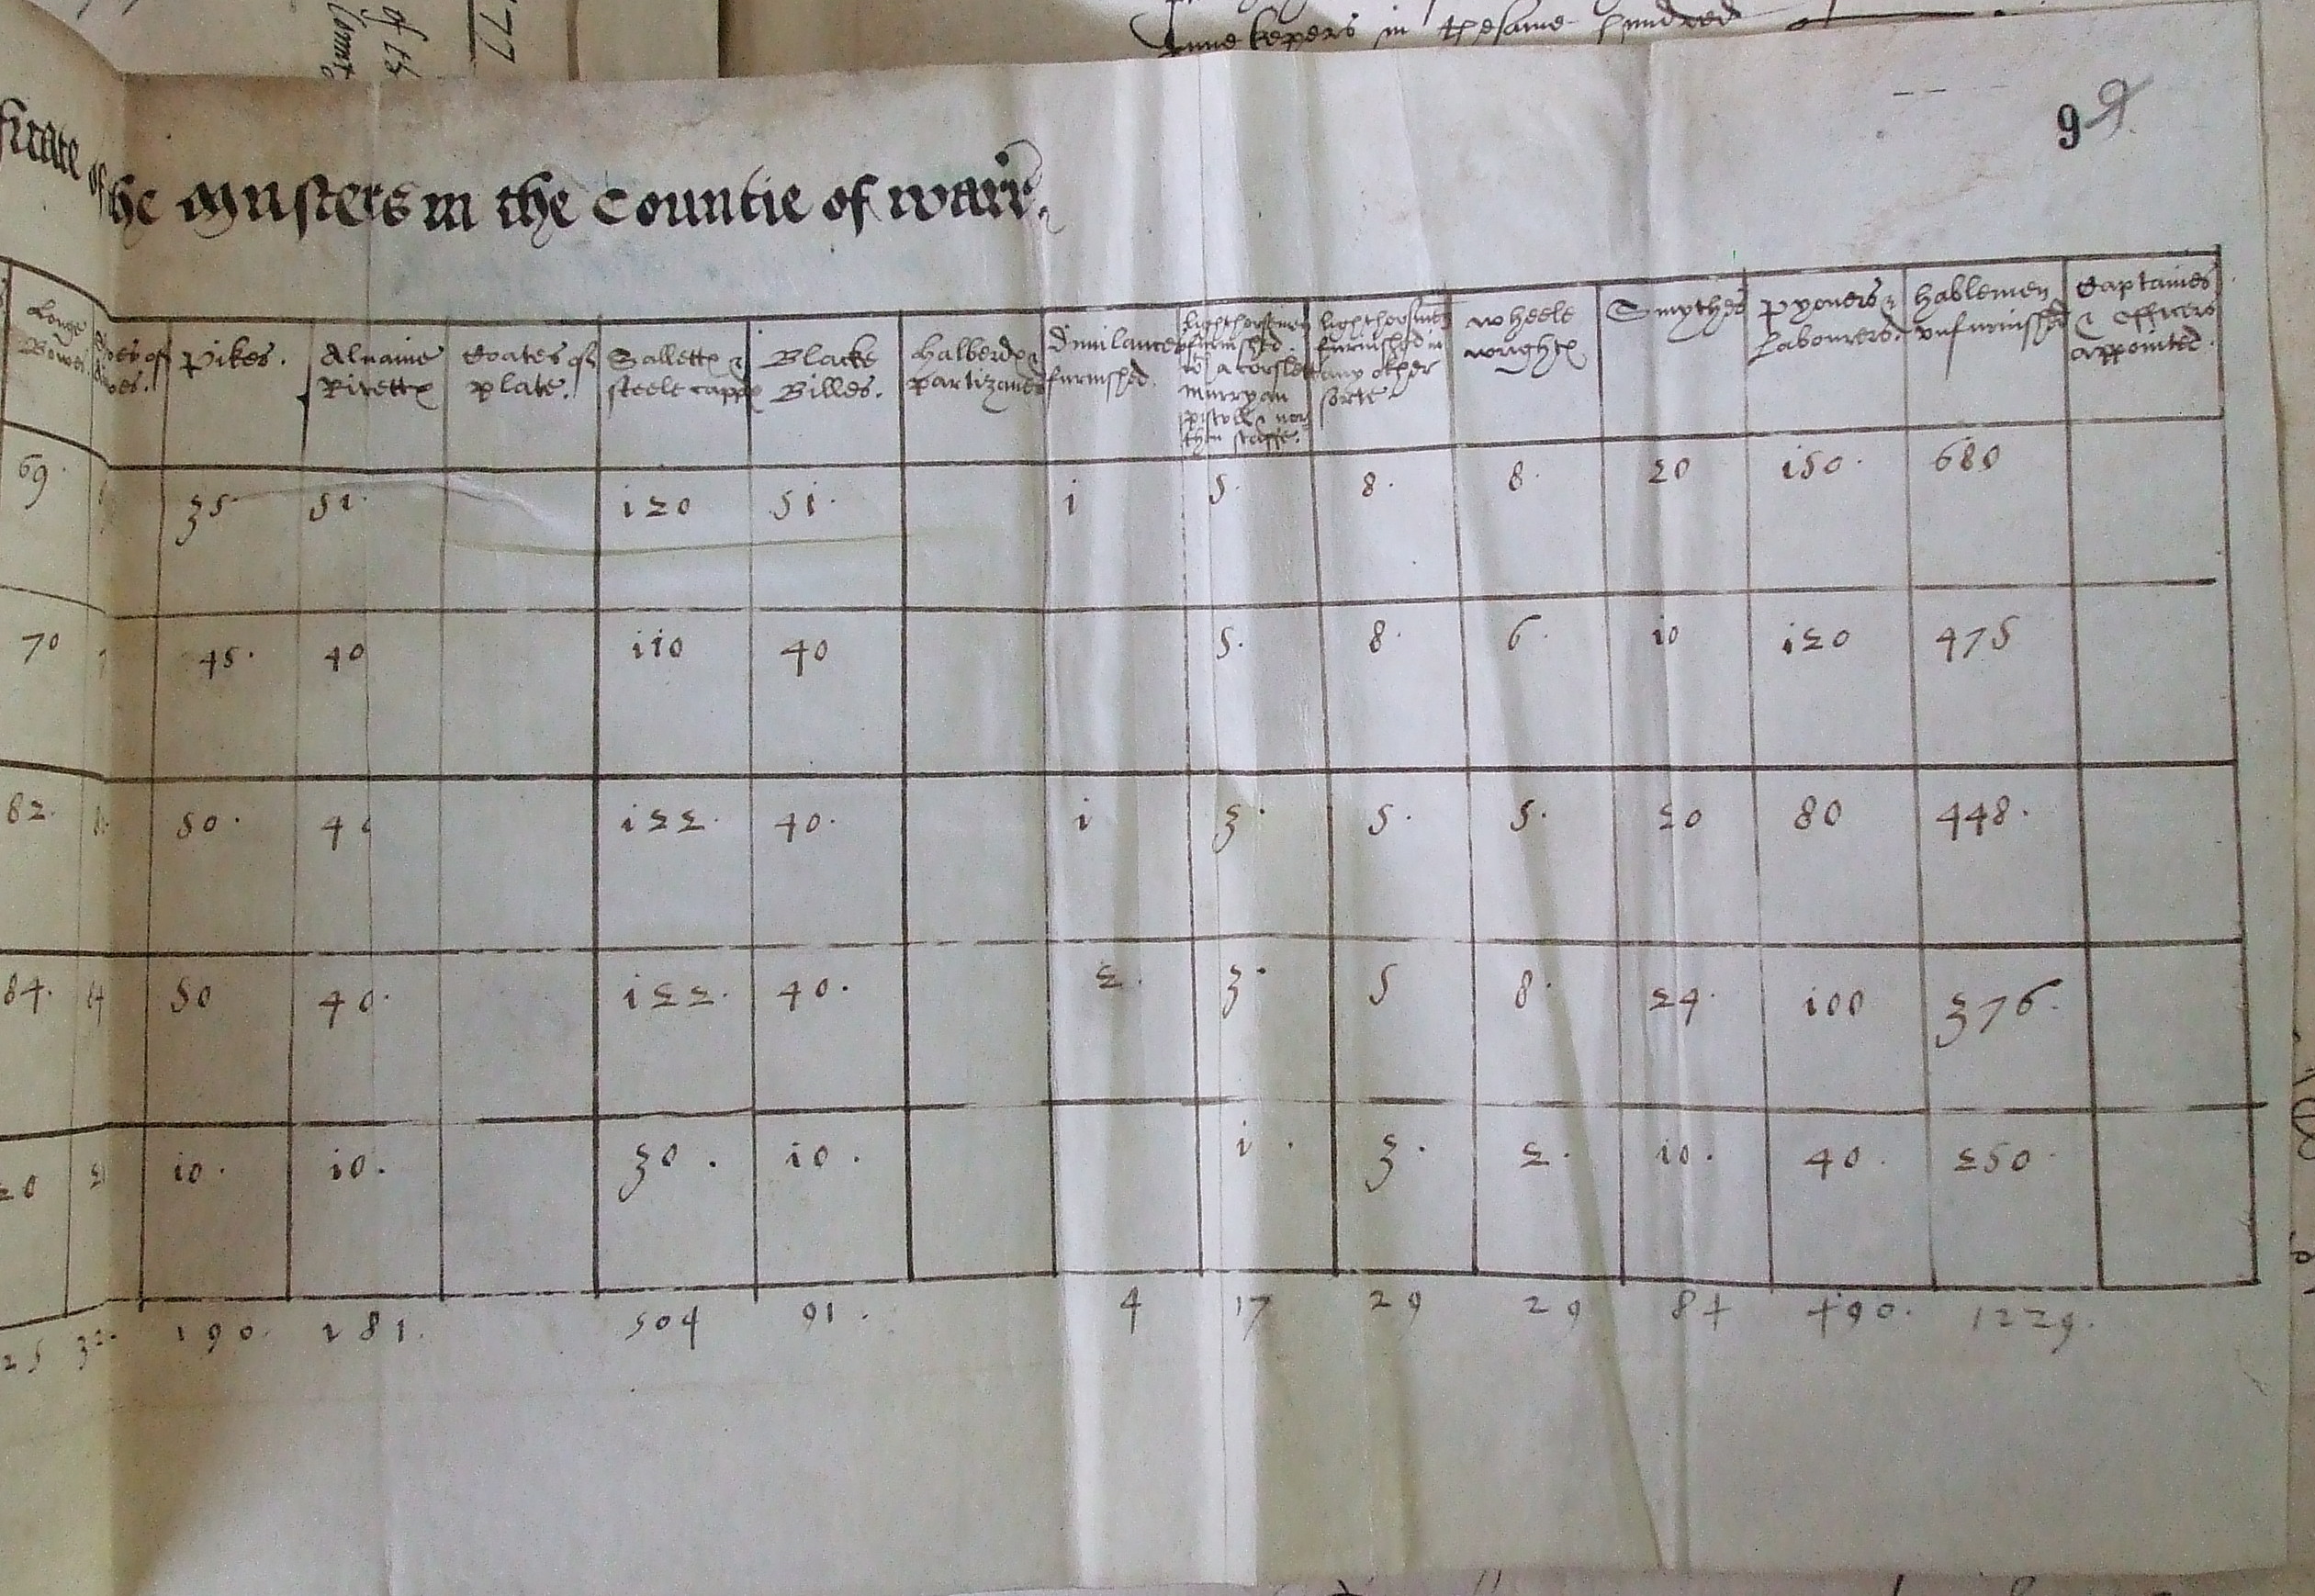 77
of is
Innekepers in thesame hundred
99
ficate of the Musters in the Countie of warr.
Longe Bowes.
Pikes.
Almaine Rivettes
Coates of plate.
Sallettes & steele cappes
Blacke Billes.
Halberdes & partizanes
Dimilances furnished.
Lighthorsemen furnished wth a corslett murryan pistoll & northen staffe.
lighthorsmen furnished in any other sorte
wheele wrightes
Smythes
Pyoners & Labourers.
Hablemen vnfurnished
Captaines & officers appointed.
69. 35. 51. 120 51. 1 5. 8. 8. 20 150. 680
70 45. 40 110 40 5. 8. 6. 10 120 475
82. 50. 40 122. 40. 1 3. 5. 5. 20 80 448.
84. 84 50 40. 122. 40. 2. 3. 5 8. 24. 100 376.
20 10. 10. 30. 10. 1. 3. 2. 10. 40. 250.
25 32. 190. 181. 504 91. 4 17 29 29 84 490. 1229.